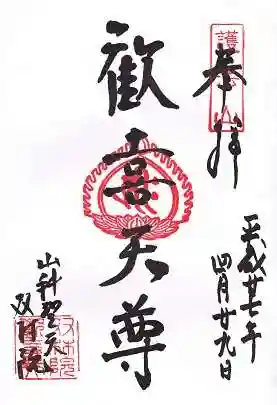 奉拝
平成廿七年
四月廿九日
歓喜天尊
山科聖天
双林院